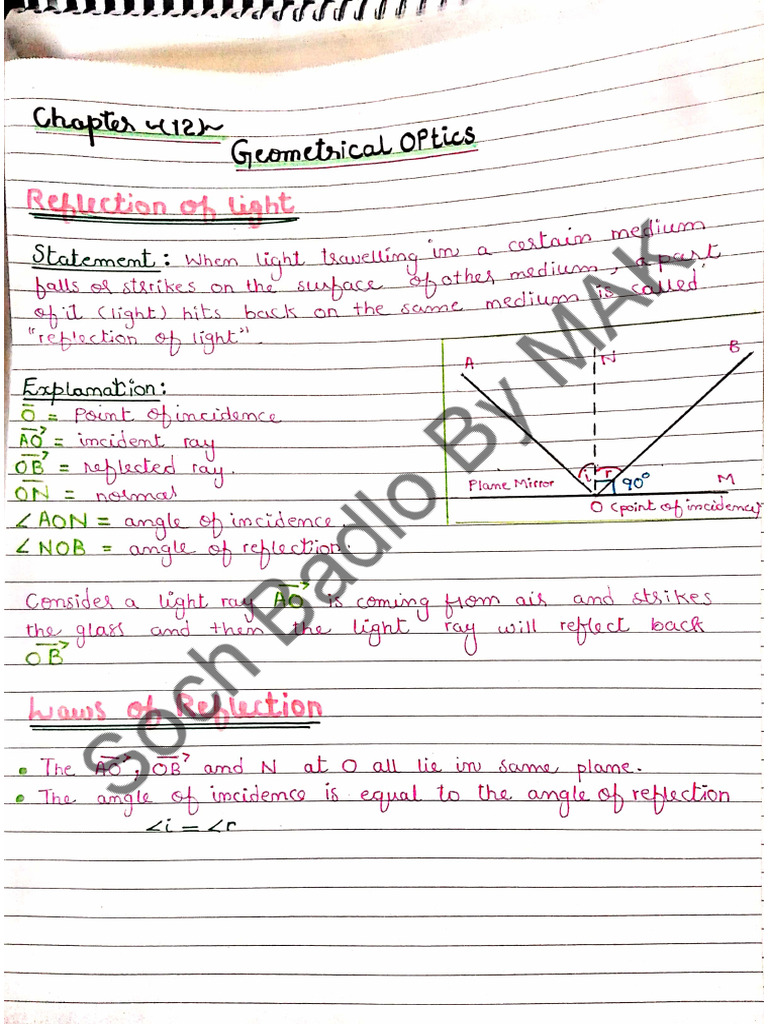 Chapter ~(12)~
Geometrical Optics
Reflection of light
Statement: When light travelling in a certain medium
falls or strikes on the surface of other medium, a part
of it (light) hits back on the same medium is called
"reflection of light".
Explanation:
O̅ = Point of incidence
A⃗O⃗ = incident ray
O⃗B⃗ = reflected ray.
O̅N̅ = normal
∠AON = angle of incidence.
∠NOB = angle of reflection.
A
N
B
i
r
90°
Plane Mirror
M
O (point of incidence)
Consider a light ray A⃗O⃗ is coming from air and strikes
the glass and then the light ray will reflect back
O⃗B⃗
Laws of Reflection
• The A⃗O⃗, O⃗B⃗ and N at O all lie in same plane.
• The angle of incidence is equal to the angle of reflection
∠i = ∠r
Soch Badlo By MAK